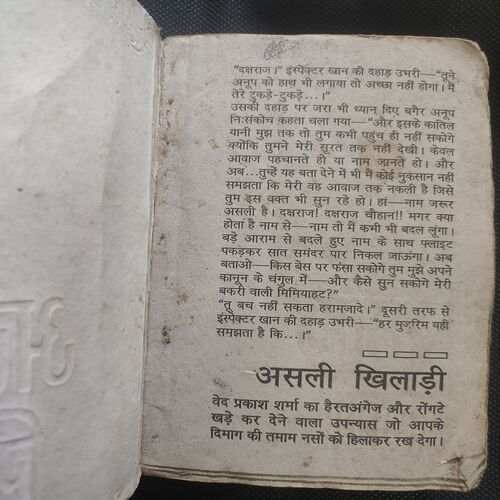 “दक्षराज।” इंस्पेक्टर खान की दहाड़ उभरी—“तूने
अनूप को हाथ भी लगाया तो अच्छा नहीं होगा। मैं
तेरे टुकड़े-टुकड़े...।”
उसकी दहाड़ पर जरा भी ध्यान दिए बगैर अनूप
निःसंकोच कहता चला गया—“और इसके कातिल
यानी मुझ तक तो तुम कभी पहुंच ही नहीं सकोगे
क्योंकि तुमने मेरी सूरत तक नहीं देखी। केवल
आवाज पहचानते हो या नाम जानते हो। और
अब...तुम्हें यह बता देने में भी मैं कोई नुकसान नहीं
समझता कि मेरी वह आवाज तक नकली है जिसे
तुम इस वक्त भी सुन रहे हो। हां—नाम जरूर
असली है। दक्षराज! दक्षराज चौहान!! मगर क्या
होता है नाम से—नाम तो मैं कभी भी बदल लूंगा।
बड़े आराम से बदले हुए नाम के साथ फ्लाइट
पकड़कर सात समंदर पार निकल जाऊंगा। अब
बताओ—किस बेस पर फंसा सकोगे तुम मुझे अपने
कानून के चंगुल में—और कैसे सुन सकोगे मेरी
बकरी वाली मिमियाहट?”
“तू बच नहीं सकता हरामजादे।” दूसरी तरफ से
इंस्पेक्टर खान की दहाड़ उभरी—“हर मुजरिम यही
समझता है कि...।”
असली खिलाड़ी
वेद प्रकाश शर्मा का हैरतअंगेज और रोंगटे
खड़े कर देने वाला उपन्यास जो आपके
दिमाग की तमाम नसों को हिलाकर रख देगा।